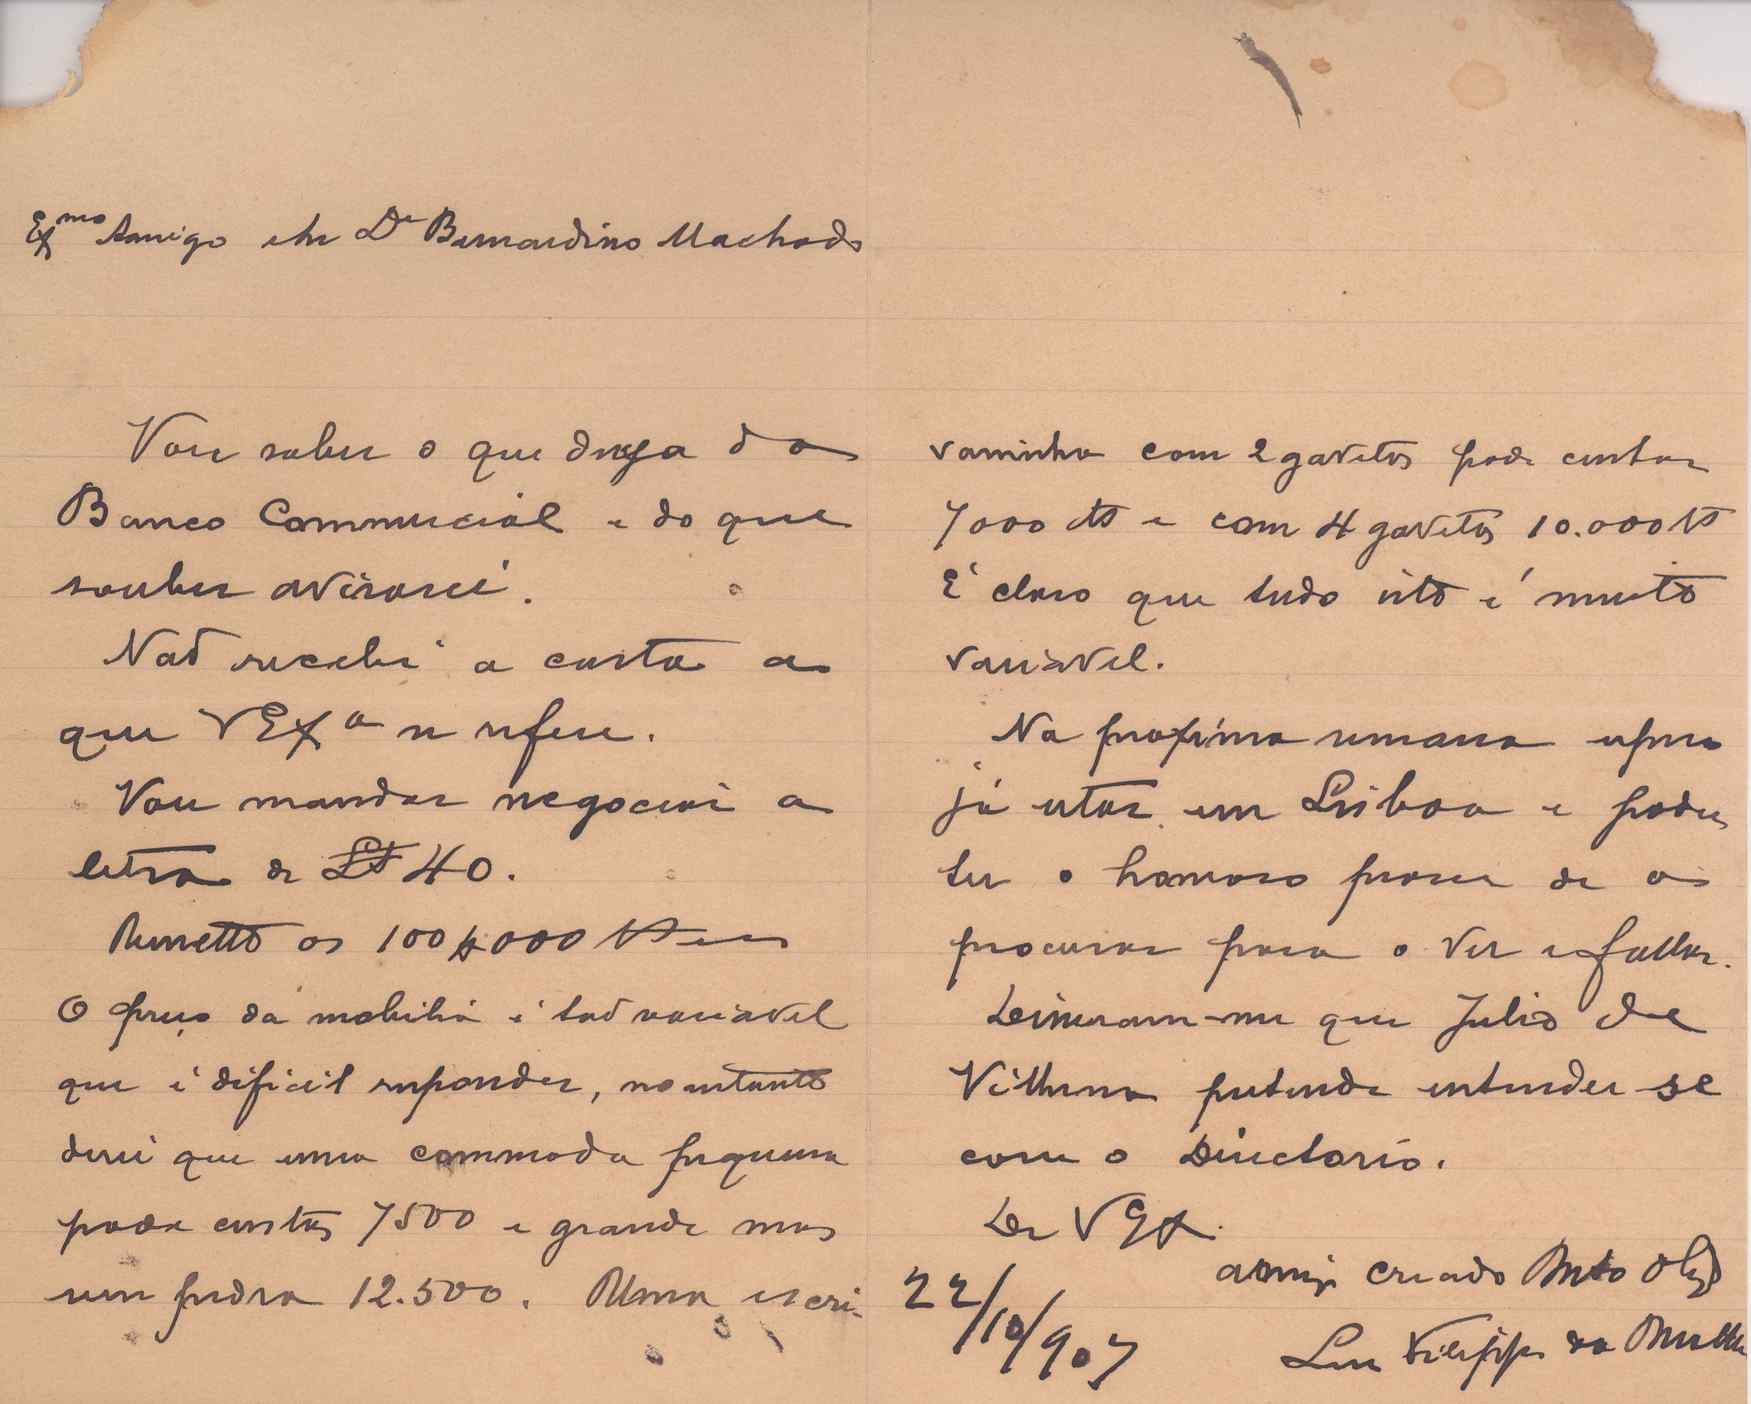 Exmo Amigo e Sr Dr Bernardino Machado
Vou saber o que deseja do
Banco Commercial e do que
souber avisarei.
Naõ recebi a carta a
que V Exa se refere.
Vou mandar negociar a
letra de Lt 40.
Remetto os 100$000 rs
O preço da mobilia é taõ variavel
que é dificil responder, no entanto
direi que uma commoda pequena
pode custar 7500 e grande mas
sem pedra 12.500. Uma escri-
vaninha com 2 gavetas pode custar
7000 rs e com 4 gavetas 10.000 rs
É claro que tudo isto é muito
variavel.
Na proxima semana espero
já estar em Lisboa e poder
ter o honroso prazer de o
procurar para o ver e fallar.
Disseram-me que Julio de
Vilhena pretende entender-se
com o Directorio.
De V Exa
amigo creado Muto Obgdo
22/10/907
Luz Filippe da Matta